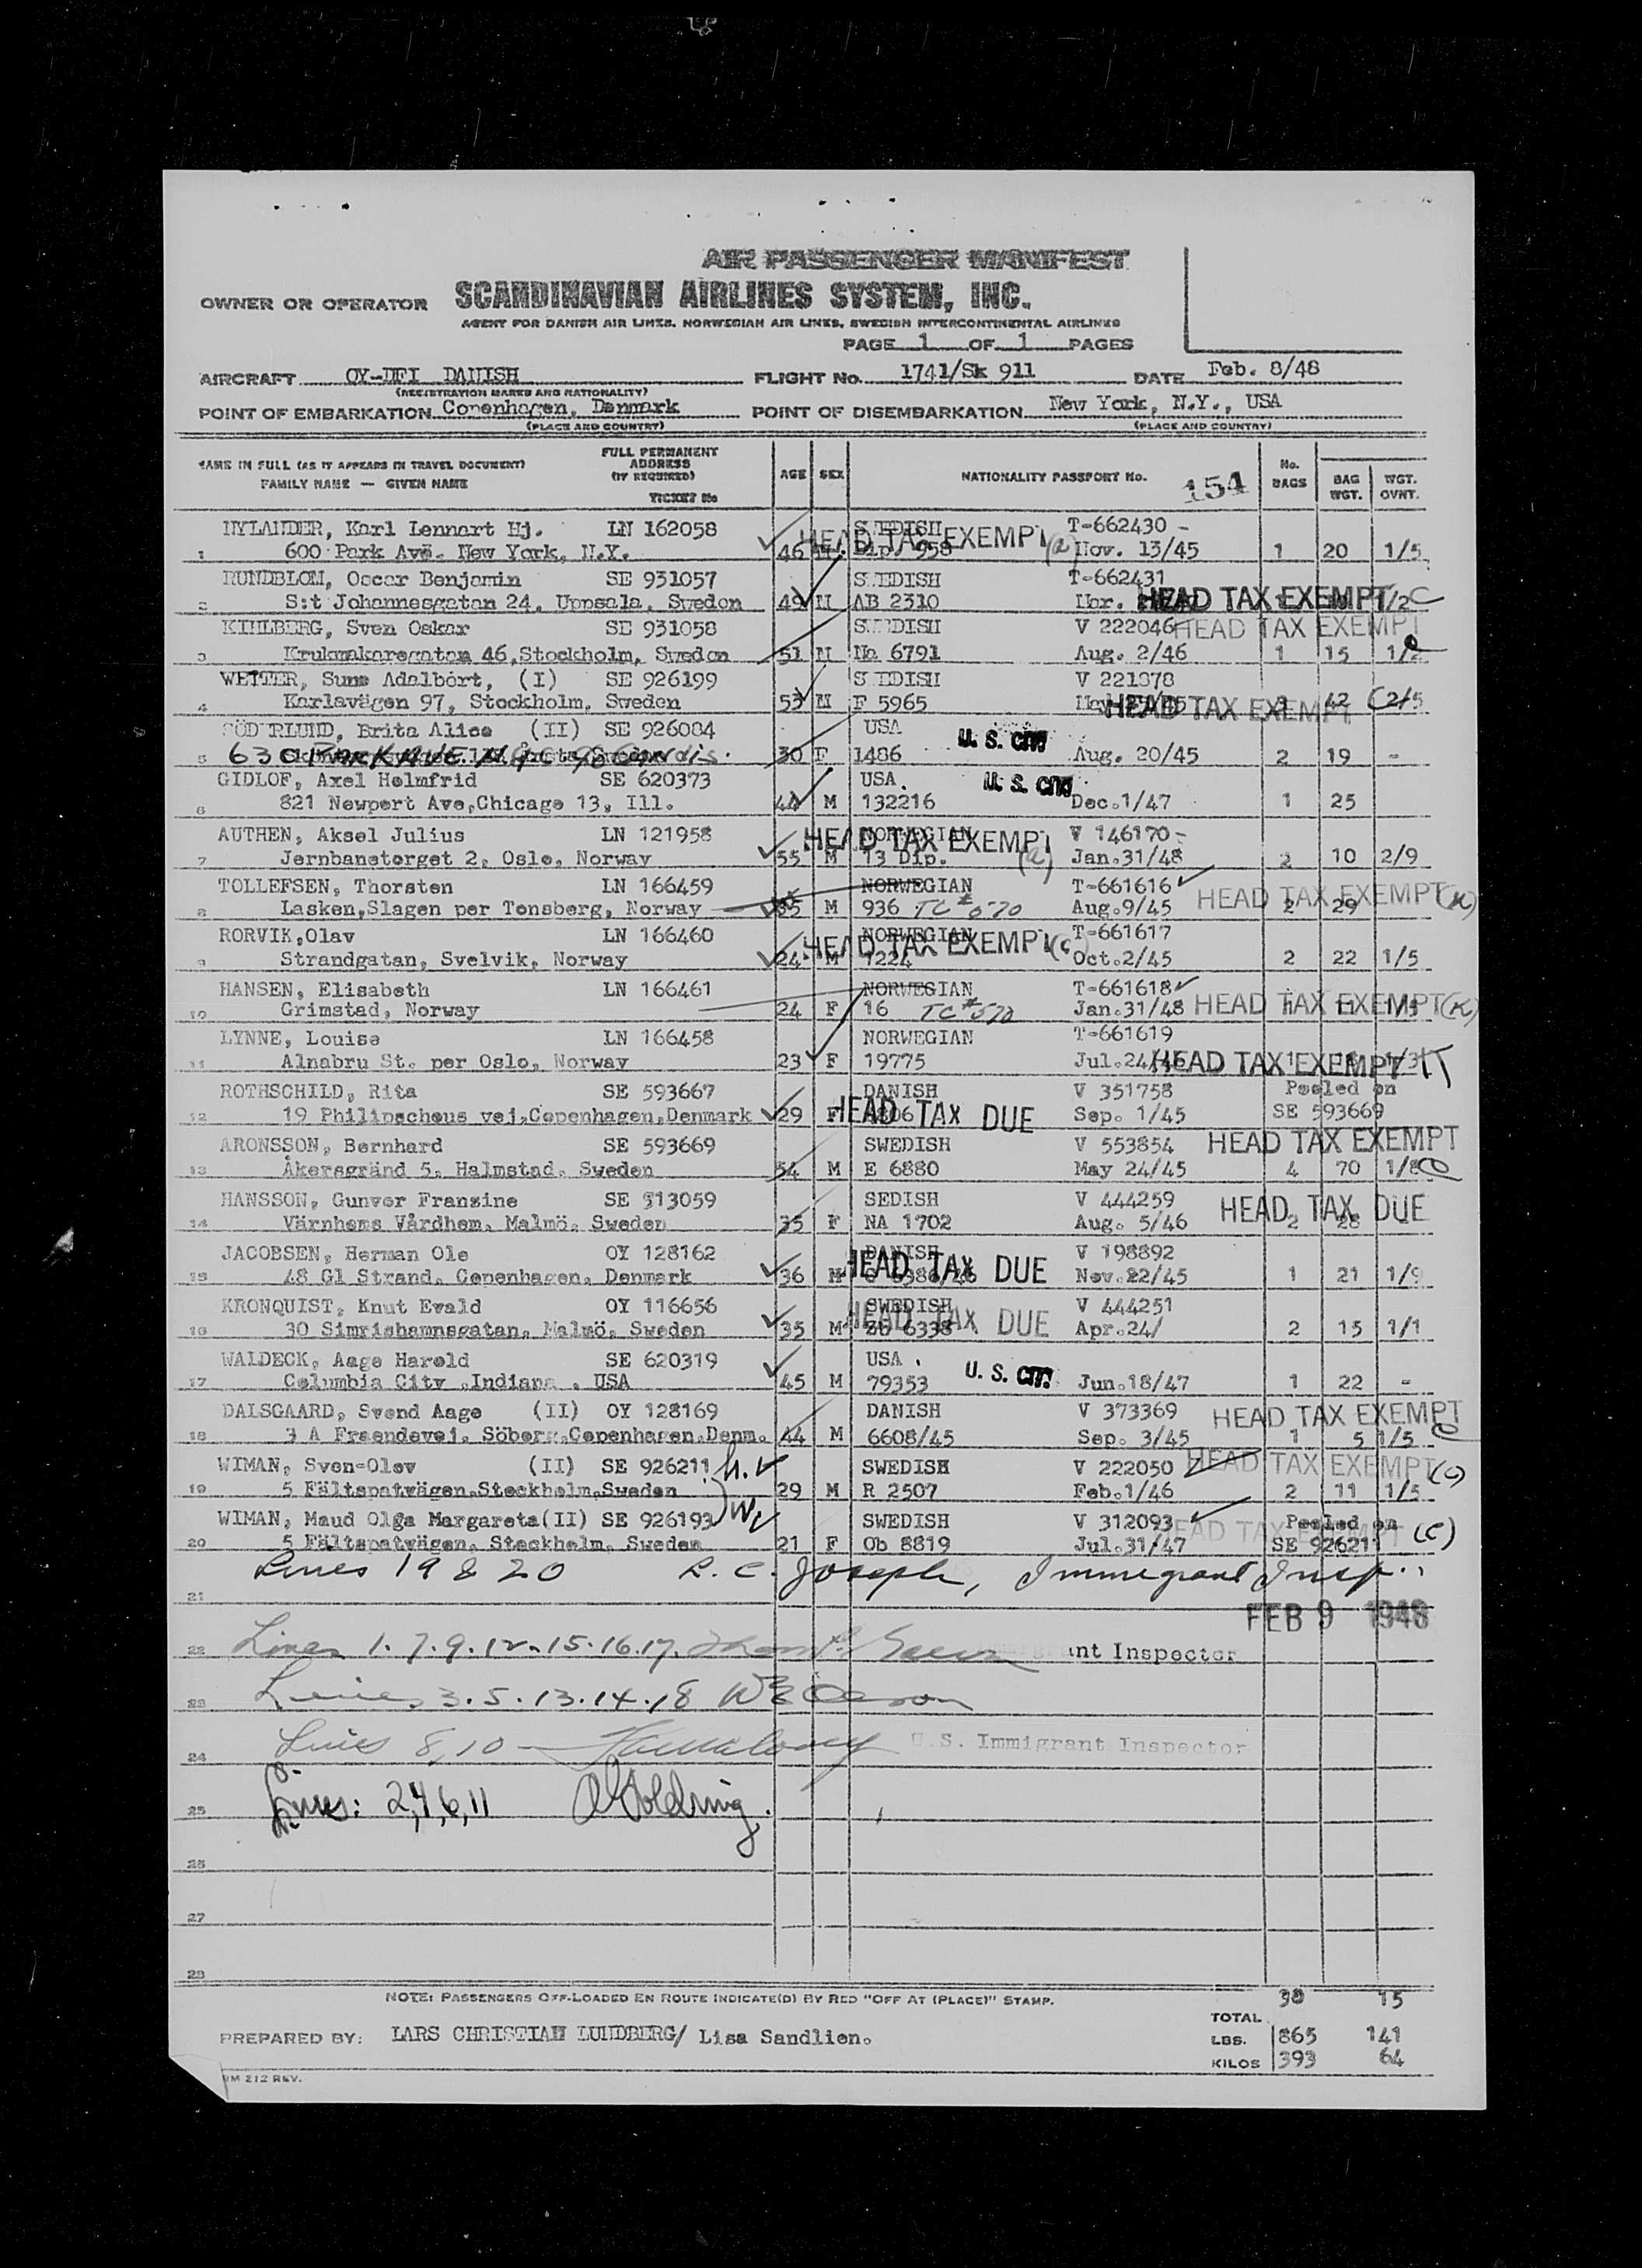 AIR PASSENGER MANIFEST
OWNER OR OPERATOR SCANDINAVIAN AIRLINES SYSTEM, INC.
AGENT FOR DANISH AIR LINES, NORWEGIAN AIR LINES, SWEDISH INTERCONTINENTAL AIRLINES
PAGE 1 OF 1 PAGES
AIRCRAFT OY-DFI DANISH FLIGHT No. 1741/Sk 911 DATE Feb. 8/48
(REGISTRATION MARKS AND NATIONALITY)
POINT OF EMBARKATION Copenhagen, Denmark POINT OF DISEMBARKATION New York, N.Y., USA
(PLACE AND COUNTRY) (PLACE AND COUNTRY)
NAME IN FULL (AS IT APPEARS IN TRAVEL DOCUMENT) FAMILY NAME — GIVEN NAME FULL PERMANENT ADDRESS (IF REQUIRED) TICKET No AGE SEX NATIONALITY PASSPORT No. 154 No. BAGS BAG WGT. WGT. OVNT.
NYLANDER, Karl Lennart Hj. LN 162058 SWEDISH HEAD TAX EXEMPT T-662430 -
1 600 Park Ave. New York, N.Y. 46 M Dip. 958 (a) Nov. 13/45 1 20 1/5
RUNDBLOM, Oscar Benjamin SE 931057 SWEDISH T-662431
2 S:t Johannesgatan 24, Uppsala, Sweden 49 M AB 2310 HEAD TAX EXEMPT 1/2 C
KIHLBERG, Sven Oskar SE 931058 SWEDISH V 222046 HEAD TAX EXEMPT
3 Krukmakaregatan 46, Stockholm, Sweden 51 M Na 6791 Aug. 2/46 1 15 1/2
WETTER, Sune Adalbört, (I) SE 926199 SWEDISH V 221878
4 Karlavägen 97, Stockholm, Sweden 53 M F 5965 HEAD TAX EXEMPT 42 2/5
SÖDERLUND, Brita Alice (II) SE 926084 USA U. S. CIT.
5 630 PARK AVE. 30 F 1486 Aug. 20/45 2 19 -
GIDLOF, Axel Holmfrid SE 620373 USA. U. S. CIT.
6 821 Newport Ave, Chicago 13, Ill. 44 M 132216 Dec. 1/47 1 25
AUTHEN, Aksel Julius LN 121958 NORWEGIAN HEAD TAX EXEMPT V 146170-
7 Jernbanetorget 2, Oslo, Norway 55 M 13 Dip. (a) Jan.31/48 2 10 2/9
TOLLEFSEN, Thorsten LN 166459 NORWEGIAN T-661616 HEAD TAX EXEMPT (K)
8 Lasken, Slagen per Tonsberg, Norway 35 M 936 TC # 570 Aug.9/45 2 29
RORVIK, Olav LN 166460 NORWEGIAN HEAD TAX EXEMPT (c) T-661617
9 Strandgatan, Svelvik, Norway 24 M 1224 Oct.2/45 2 22 1/5
HANSEN, Elisabeth LN 166461 NORWEGIAN T-661618
10 Grimstad, Norway 24 F 16 TC # 570 Jan.31/48 HEAD TAX EXEMPT (K)
LYNNE, Louise LN 166458 NORWEGIAN T-661619
11 Alnabru St. per Oslo, Norway 23 F 19775 Jul.24/ HEAD TAX EXEMPT
ROTHSCHILD, Rita SE 593667 DANISH V 351758 Pooled on
12 19 Philipschous vej, Copenhagen, Denmark 29 F HEAD TAX DUE Sep. 1/45 SE 593669
ARONSSON, Bernhard SE 593669 SWEDISH V 553854 HEAD TAX EXEMPT
13 Åkersgränd 5, Halmstad, Sweden 54 M E 6880 May 24/45 4 70 1/8
HANSSON, Gunvor Franzine SE 313059 SEDISH V 444259 HEAD TAX DUE
14 Värnhems Vårdhem, Malmö, Sweden 35 F NA 1702 Aug. 5/46 2 28
JACOBSEN, Herman Ole OY 128162 DANISH HEAD TAX DUE V 198892
15 48 Gl Strand, Copenhagen, Denmark 36 M Nov.22/45 1 21 1/9
KRONQUIST, Knut Evald OY 116656 SWEDISH HEAD TAX DUE V 444251
16 30 Simrishamnsgatan, Malmö, Sweden 35 M 6338 Apr.24/ 2 15 1/1
WALDECK, Aage Harold SE 620319 USA. U. S. CIT.
17 Columbia City, Indiana, USA 45 M 79353 Jun.18/47 1 22 -
DALSGAARD, Svend Aage (II) OY 128169 DANISH V 373369 HEAD TAX EXEMPT
18 3 A Fraendevej, Söborg, Copenhagen, Denm. 44 M 6608/45 Sep. 3/45 1 5 1/5
WIMAN, Sven-Olov (II) SE 926211 SWEDISH V 222050 HEAD TAX EXEMPT (c)
19 5 Fältspatvägen, Stockholm, Sweden 29 M R 2507 Feb.1/46 2 11 1/5
WIMAN, Maud Olga Margareta (II) SE 926193 SWEDISH V 312093 Pooled on HEAD TAX EXEMPT (C)
20 5 Fältspatvägen, Stockholm, Sweden 21 F Ob 8819 Jul.31/47 SE 926211
Lines 19 & 20 R. C. Joseph, Immigrant Insp.
21 FEB 9 1948
22 Lines 1. 7. 9. 12. 15. 16. 17. Immigrant Inspector
23 Lines 3. 5. 13. 14. 18
24 Lines 8, 10 U. S. Immigrant Inspector
25 Lines: 2,4,6,11
26
27
28
NOTE: PASSENGERS OFF-LOADED EN ROUTE INDICATE(D) BY RED "OFF AT (PLACE)" STAMP.
TOTAL 30 15
PREPARED BY: LARS CHRISTIAN LUNDBERG/ Lisa Sandlien. LBS. 865 141
KILOS 393 64
RM 212 REV.